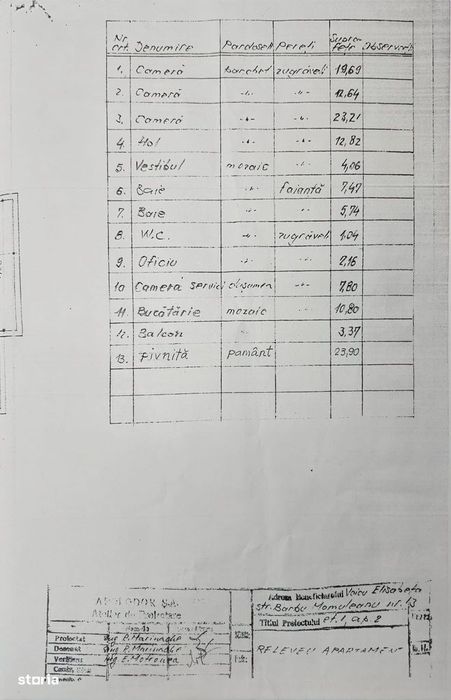 Nr. crt. Denumire Pardoseli Pereți Supra-față Observații
1. Cameră parchet zugrăveli 19,69
2. Cameră -"- -"- 12,64
3. Cameră -"- -"- 23,21
4. Hol -"- -"- 12,82
5. Vestibul mozaic -"- 4,06
6. Baie -"- faianță 7,47
7. Baie -"- -"- 5,74
8. W.C. -"- zugrăveli 1,04
9. Oficiu -"- -"- 2,16
10 Camera servici -"- 7,80
11. Bucătărie mozaic -"- 10,80
12. Balcon 3,37
13. Pivniță pamânt 23,90
Atelier de Proiectare
Adresa Beneficiarului Voicu Elisabeta
str. Barbu Momuleanu nr. 43
Titlul Proiectului et. 1, ap 2
Proiectat
Desenat
Verificat
RELEVEU APARTAMENT
storia